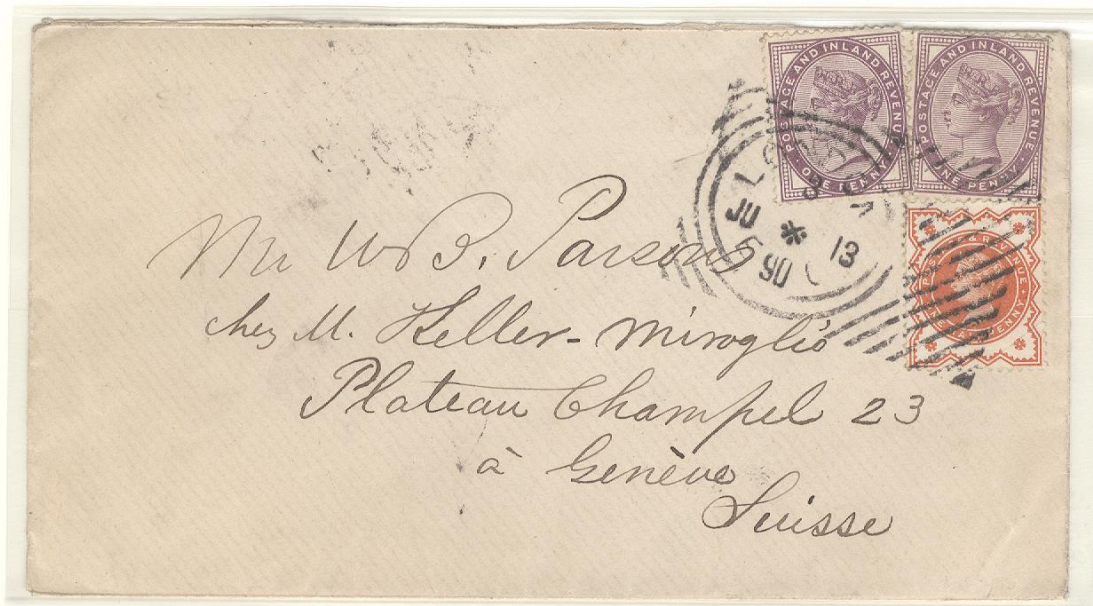 POSTAGE AND INLAND REVENUE
ONE PENNY
POSTAGE AND INLAND REVENUE
ONE PENNY
LONDON
8
JU 13
5 90
& REVENUE
Mr W B. Parsons
chez M. Heller-Miroglio
Plateau Champel 23
à Genève
Suisse